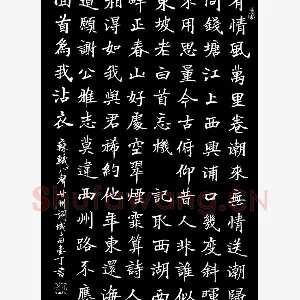 有情風萬里卷潮來無情送潮歸
問錢塘江上西興浦口幾度斜暉
不用思量今古俯仰昔人非誰似
東坡老白首忘機 記取西湖西
畔正春山好處空翠煙霏算詩人
相得如我與君稀約他年東還海
道願謝公雅志莫違西州路不應
回首為我沾衣 蘇軾八聲甘州詞